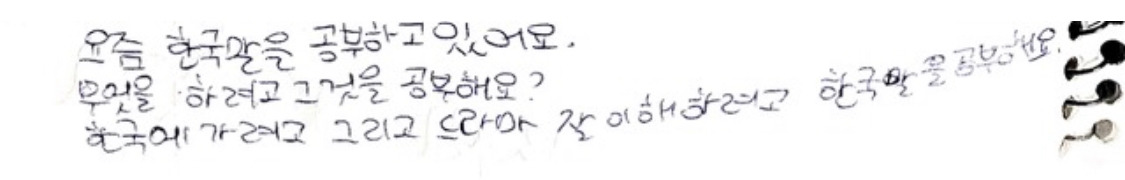 요즘 한국말을 공부하고 있어요.
무엇을 하려고 그것을 공부해요?
한국에 가려고 그리고 드라마 잘 이해하려고 한국말을 공부해요.